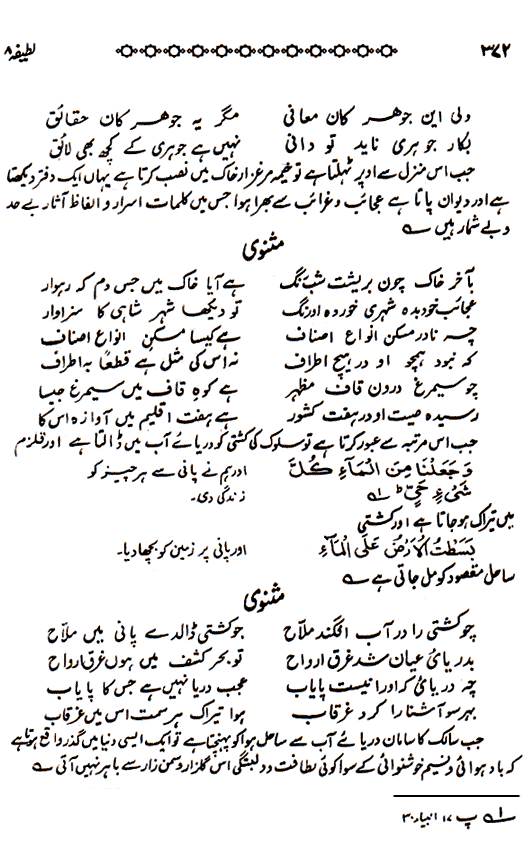 ۳۷۲ لطیفہ ۸
ولی این جوهر کان معانی مگر یہ جوھر کان حقائق
بکار جوہری ناید تو دانی نہیں ہے جوہری کے کچھ بھی لائق
جب اس منزل سے اوپر ٹہلتا ہے تو خیمہ مرغزار خاک میں نصب کرتا ہے یہاں ایک دفتر دیکھتا
ہے اور دیوان پاتا ہے عجائب و غرائب سے بھرا ہوا جس میں کلمات اسرار و الفاظ آثار بے حد
و بے شمار ہیں ؎
مثنوی
بآخر خاک چون بریشت شبرنگ ہے آیا خاک میں جس دم کہ رہوار
عجائب خود بدہ شہری خور و اورنگ تو دیکھا شہر شاہی کا سزاوار
چہ نادر مسکن انواع اصناف ہے کیسا مسکن انواع اصناف
کہ نبود ہمچو او در ہیچ اطراف نہ اس کی مثل ہے قطعاً بہ اطراف
چو سیمرغ درون قاف مظہر ہے کوہ قاف میں سیمرغ جیسا
رسیدہ صیت او در ہفت کشور ہے ہفت اقلیم میں آوازہ اس کا
جب اس مرتبہ سے عبور کرتا ہے تو سلوک کی کشتی کو دریائے آب میں ڈالتا ہے اور قلزم
وَجَعَلْنَا مِنَ الْمَآءِ كُلَّ اور ہم نے پانی سے ہر چیز کو
شَیْءٍ حَیٍّ ط ؎۱ زندگی دی۔
میں تیراک ہو جاتا ہے اور کشتی
بَسَطْتُ الْاَرْضَ عَلَی الْمَآءِ اور پانی پر زمین کو بچھا دیا۔
ساحل مقصود کو مل جاتی ہے ؎
مثنوی
چو کشتی را در آب افگند ملاح جو کشتی ڈالدے پانی میں ملاح
بدریائ عیان شد غرق ارواح تو بحر کشف میں ہوں غرق ارواح
چہ دریائ کہ اورا نیست پایاب عجب دریا نہیں ہے جس کا پایاب
بہر سو آشنا را کرد غرقاب ہوا تیراک ہر سمت اس میں غرقاب
جب سالک کا سامان دریائے آب سے ساحل ہوا کو پہنچتا ہے تو ایک ایسی دنیا میں گذر واقع ہوتا ہے
کہ باد ہوائی و نسیم خوشنوائی کے سوا کوئی لطافت و دلبستگی اس گلزار و سمن زار سے باہر نہیں آتی ؎
؎۱ پ ۱۷ انبیاء ۳۰